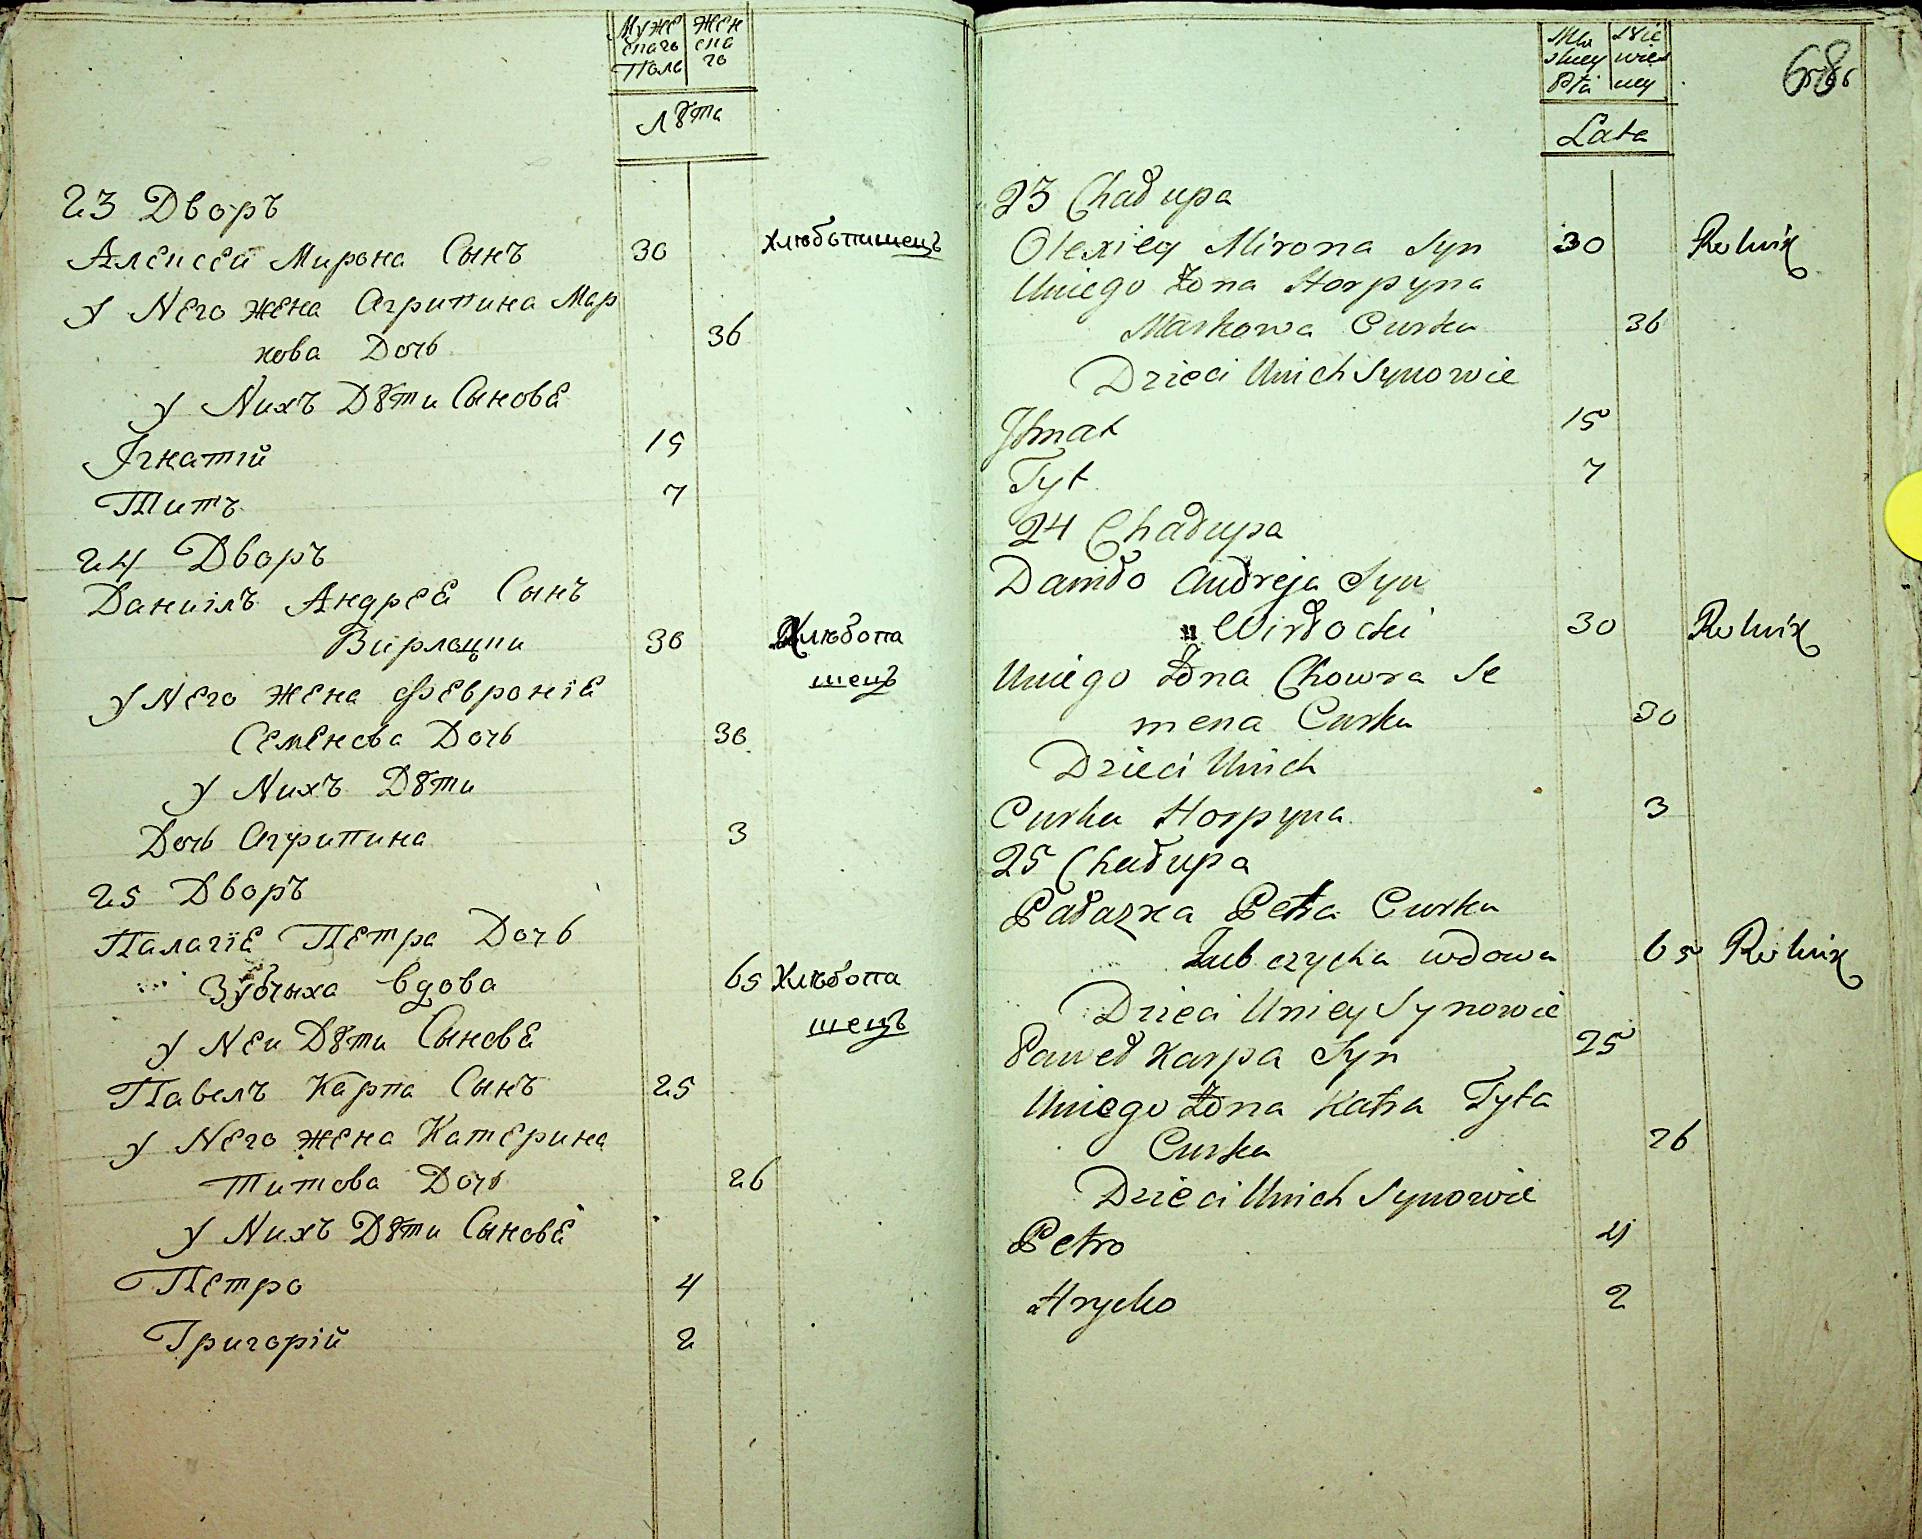 Муже Жен
скаго ска
Полъ го
Лѣта
23 Дворъ
Алексей Мирона Сынъ 30 хлюбопишецъ
у Него жена Агрипина Мар
кова Дочь 36
у Нихъ Дѣти Сынове
Ігнатій 15
Титъ 7
24 Дворъ
Даниілъ Андрея Сынъ
Вирлоцки 30 Хлюбопа
шецъ
у Него жена Февроніе
Семенова Дочь 30
у Нихъ Дѣти
Дочь Агрипина 3
25 Дворъ
Палагіе Петра Дочь
Зубчыха вдова 65 Хлюбопа
шецъ
у Неи Дѣти Сынове
Павелъ Карпа Сынъ 25
у Него жена Катерина
Титова Дочь 26
у Нихъ Дѣти Сынове
Петро 4
Григорій 2
68
Lata
23 Chałupa
Olexiey Mirona Syn 30 Rolnik
Uniego Żona Horpyna
Markowa Curka 36
Dzieci Unich Synowie
Ihnat 15
Tyt 7
24 Chałupa
Daniło Andreja Syn
Wirłocki 30 Rolnik
Uniego Żona Chowra Se
mena Curka 30
Dzieci Unich
Curka Horpyna 3
25 Chałupa
Pałazka Petra Curka
Zubczycha wdowa 65 Rolnik
Dzieci Uniey Synowie
Paweł Karpa Syn 25
Uniego Żona Katra Tyta
Curka 26
Dzieci Unich Synowie
Petro 4
Hryćko 2